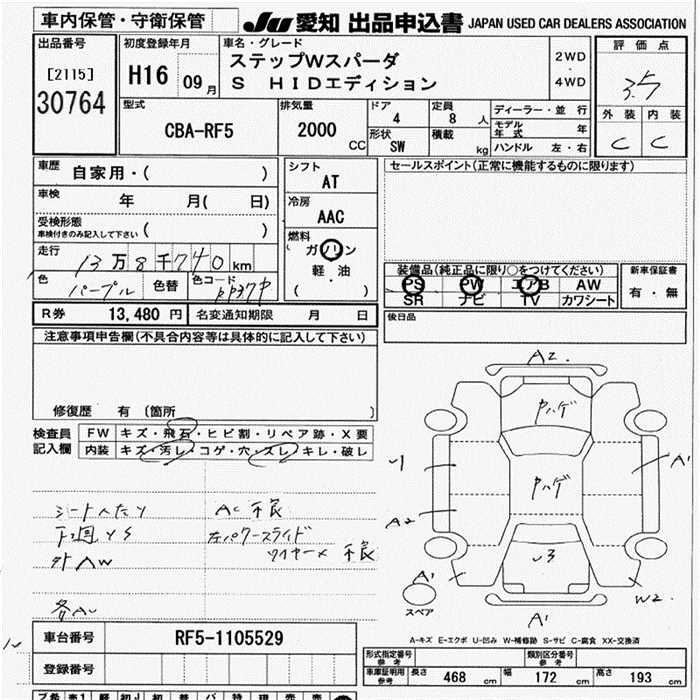 車内保管・守衛保管
JU 愛知 出品申込書 JAPAN USED CAR DEALERS ASSOCIATION
出品番号
[2115]
30764
初度登録年月
H16 09月
車名・グレード
ステップWスパーダ
S HIDエディション
2WD
・
4WD
評価点
3.5
外装 内装
C C
型式
CBA-RF5
排気量
2000
CC
ドア
4
定員
8 人
形状
SW
積載
kg
ディーラー・並行
モデル年式 年
ハンドル 左・右
車歴 自家用・( )
車検 年 月( 日)
受検形態
車検付きのみ記入して下さい ( )
走行 13万8千740km
色 パープル 色替 色コード
シフト
AT
冷房
AAC
燃料
ガソリン
軽・油
( )
セールスポイント(正常に機能するものに限ります)
装備品(純正品に限り○をつけてください)
PS PW エアB AW
SR ナビ TV カワシート
新車保証書
有・無
R券 13,480円 名変通知期限 月 日
後日品
注意事項申告欄(不具合内容等は具体的に記入して下さい)
修復歴 有 (箇所 )
検査員
記入欄
FW キズ・飛石・ヒビ割・リペア跡・X要
内装 キズ・汚レ・コゲ・穴・ズレ・キレ・破レ
シートヘたり
AC 不良
下廻りS
左パワースライド
ワイヤーメ 不良
外AW
各AU
A2
中ハゲ
U1
A1
中ハゲ
A2
U3
A1
W2
スペア
A1
A-キズ E-エクボ U-凹み W-補修跡 S-サビ C-腐食 XX-交換済
車台番号 RF5-1105529
登録番号
形式指定番号
参考
類別区分番号
参考
車庫証明用
参考
長さ 468 cm 幅 172 cm 高さ 193 cm